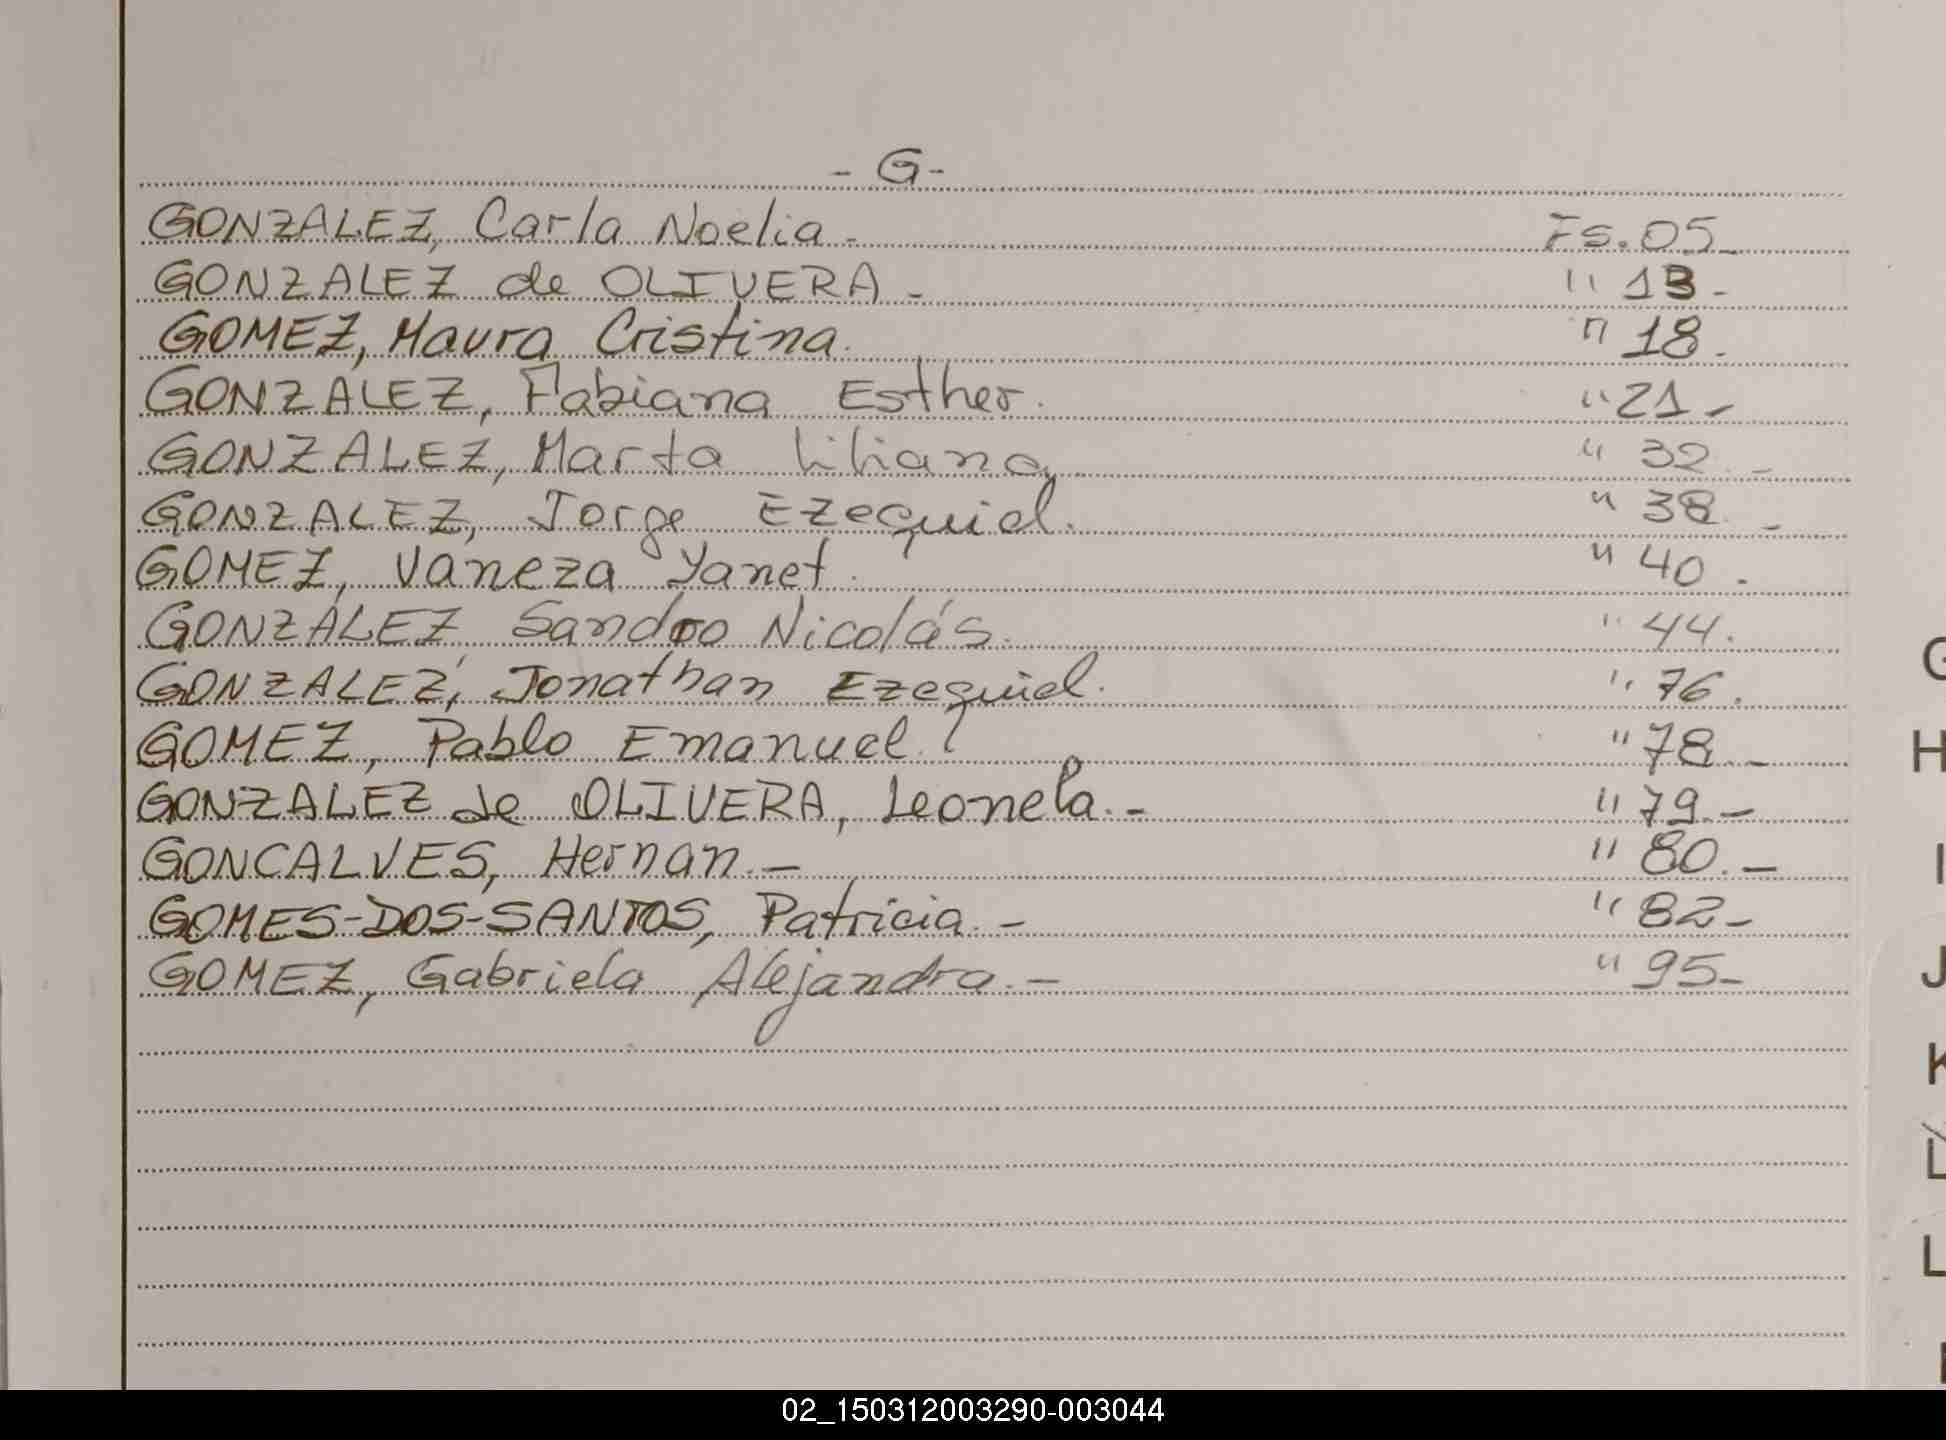 - G -
GONZALEZ, Carla Noelia - Fs. 05 -
GONZALEZ de OLIVERA - " 13 -
GOMEZ, Maura Cristina. " 18.
GONZALEZ, Fabiana Esther. " 21 -
GONZALEZ, Marta Liliana, " 32. -
GONZALEZ, Jorge Ezequiel. " 38. -
GOMEZ, Vaneza Yanet. " 40.
GONZALEZ Sandro Nicolás. " 44.
GONZALEZ, Jonathan Ezequiel. " 76.
GOMEZ, Pablo Emanuel. " 78. -
GONZALEZ de OLIVERA, Leonela. - " 79. -
GONCALVES, Hernan. - " 80. -
GOMES-DOS-SANTOS, Patricia. - " 82 -
GOMEZ, Gabriela Alejandra. - " 95 -
G
H
I
J
K
L
L
02_150312003290-003044